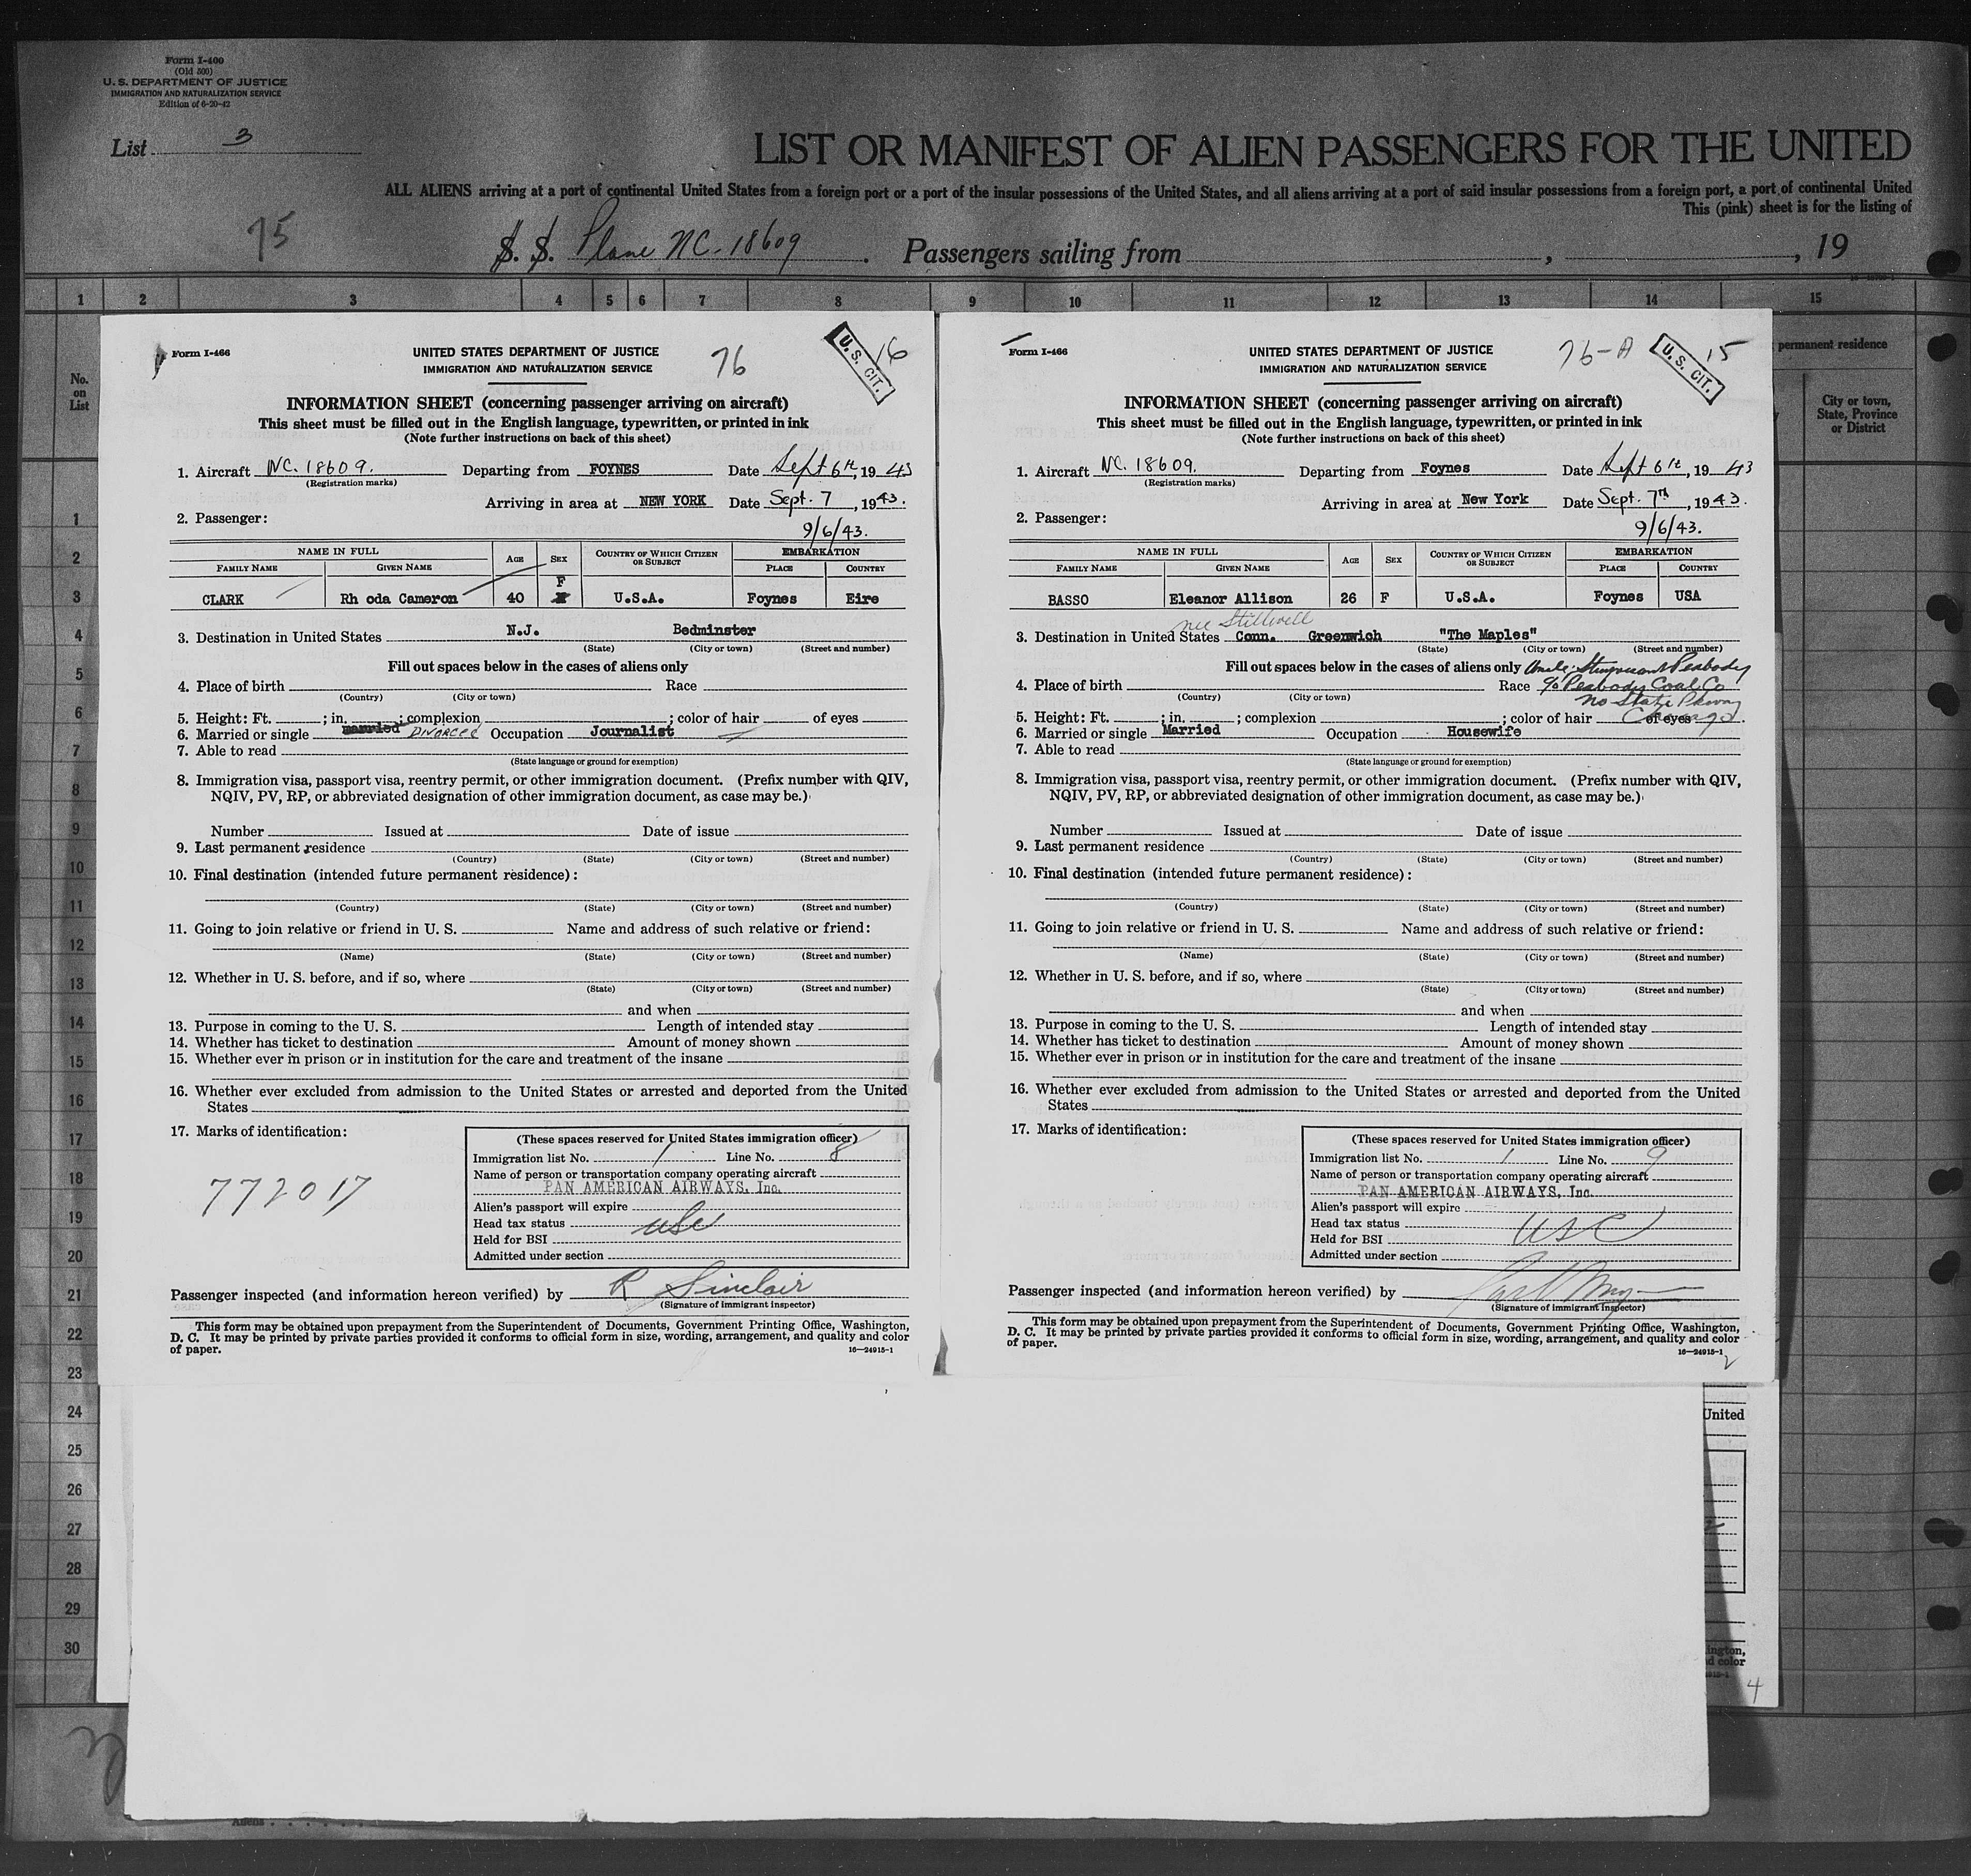 Form I-400
(Old 500)
U. S. DEPARTMENT OF JUSTICE
IMMIGRATION AND NATURALIZATION SERVICE
Edition of 6-20-42
List 3
LIST OR MANIFEST OF ALIEN PASSENGERS FOR THE UNITED
ALL ALIENS arriving at a port of continental United States from a foreign port or a port of the insular possessions of the United States, and all aliens arriving at a port of said insular possessions from a foreign port, a port of continental United
This (pink) sheet is for the listing of
75
S. S. Plane NC-18609. Passengers sailing from , , 19
1 2 3 4 5 6 7 8 9 10 11 12 13 14 15
No. on List
permanent residence
City or town, State, Province or District
1
2
3
4
5
6
7
8
9
10
11
12
13
14
15
16
17
18
19
20
21
22
23
24
25
26
27
28
29
30
Form I-466
UNITED STATES DEPARTMENT OF JUSTICE
IMMIGRATION AND NATURALIZATION SERVICE
76
U. S. CIT.
16
INFORMATION SHEET (concerning passenger arriving on aircraft)
This sheet must be filled out in the English language, typewritten, or printed in ink
(Note further instructions on back of this sheet)
1. Aircraft NC. 18609. Departing from FOYNES Date Sept 6th, 1943
(Registration marks)
Arriving in area at NEW YORK Date Sept. 7, 1943.
2. Passenger:
9/6/43.
NAME IN FULL AGE SEX COUNTRY OF WHICH CITIZEN OR SUBJECT EMBARKATION
FAMILY NAME GIVEN NAME PLACE COUNTRY
F
CLARK Rh oda Cameron 40 U.S.A. Foynes Eire
3. Destination in United States N.J. Bedminster
(State) (City or town) (Street and number)
Fill out spaces below in the cases of aliens only
4. Place of birth Race
(Country) (City or town)
5. Height: Ft. ; in. ; complexion ; color of hair of eyes
6. Married or single married DIVORCED Occupation Journalist
7. Able to read
(State language or ground for exemption)
8. Immigration visa, passport visa, reentry permit, or other immigration document. (Prefix number with QIV,
NQIV, PV, RP, or abbreviated designation of other immigration document, as case may be.)
Number Issued at Date of issue
9. Last permanent residence
(Country) (State) (City or town) (Street and number)
10. Final destination (intended future permanent residence):
(Country) (State) (City or town) (Street and number)
11. Going to join relative or friend in U. S. Name and address of such relative or friend:
(Name) (State) (City or town) (Street and number)
12. Whether in U. S. before, and if so, where
(State) (City or town) (Street and number)
and when
13. Purpose in coming to the U. S. Length of intended stay
14. Whether has ticket to destination Amount of money shown
15. Whether ever in prison or in institution for the care and treatment of the insane
16. Whether ever excluded from admission to the United States or arrested and deported from the United
States
17. Marks of identification:
772017
(These spaces reserved for United States immigration officer)
Immigration list No. 1 Line No. 8
Name of person or transportation company operating aircraft
PAN AMERICAN AIRWAYS, Inc.
Alien's passport will expire
Head tax status USC
Held for BSI
Admitted under section
Passenger inspected (and information hereon verified) by R Sinclair
(Signature of immigrant inspector)
This form may be obtained upon prepayment from the Superintendent of Documents, Government Printing Office, Washington,
D. C. It may be printed by private parties provided it conforms to official form in size, wording, arrangement, and quality and color
of paper.
16—24915-1
Form I-466
UNITED STATES DEPARTMENT OF JUSTICE
IMMIGRATION AND NATURALIZATION SERVICE
76-A
U. S. CIT.
15
INFORMATION SHEET (concerning passenger arriving on aircraft)
This sheet must be filled out in the English language, typewritten, or printed in ink
(Note further instructions on back of this sheet)
1. Aircraft NC. 18609. Departing from Foynes Date Sept 6th, 1943
(Registration marks)
Arriving in area at New York Date Sept. 7th, 1943.
2. Passenger:
9/6/43.
NAME IN FULL AGE SEX COUNTRY OF WHICH CITIZEN OR SUBJECT EMBARKATION
FAMILY NAME GIVEN NAME PLACE COUNTRY
BASSO Eleanor Allison 26 F U.S.A. Foynes USA
nee Stillwell
3. Destination in United States Conn. Greenwich "The Maples"
(State) (City or town) (Street and number)
Fill out spaces below in the cases of aliens only Uncle: Stuyvesant Peabody
4. Place of birth Race c/o Peabody Coal Co
(Country) (City or town) No State Pkway
5. Height: Ft. ; in. ; complexion ; color of hair of eyes Chicago
6. Married or single Married Occupation Housewife
7. Able to read
(State language or ground for exemption)
8. Immigration visa, passport visa, reentry permit, or other immigration document. (Prefix number with QIV,
NQIV, PV, RP, or abbreviated designation of other immigration document, as case may be.)
Number Issued at Date of issue
9. Last permanent residence
(Country) (State) (City or town) (Street and number)
10. Final destination (intended future permanent residence):
(Country) (State) (City or town) (Street and number)
11. Going to join relative or friend in U. S. Name and address of such relative or friend:
(Name) (State) (City or town) (Street and number)
12. Whether in U. S. before, and if so, where
(State) (City or town) (Street and number)
and when
13. Purpose in coming to the U. S. Length of intended stay
14. Whether has ticket to destination Amount of money shown
15. Whether ever in prison or in institution for the care and treatment of the insane
16. Whether ever excluded from admission to the United States or arrested and deported from the United
States
17. Marks of identification:
(These spaces reserved for United States immigration officer)
Immigration list No. 1 Line No. 9
Name of person or transportation company operating aircraft
PAN AMERICAN AIRWAYS, Inc.
Alien's passport will expire
Head tax status USC
Held for BSI
Admitted under section
Passenger inspected (and information hereon verified) by
(Signature of immigrant inspector)
This form may be obtained upon prepayment from the Superintendent of Documents, Government Printing Office, Washington,
D. C. It may be printed by private parties provided it conforms to official form in size, wording, arrangement, and quality and color
of paper.
16—24915-1
2
United
ington,
d color
915-1
4
Aliens